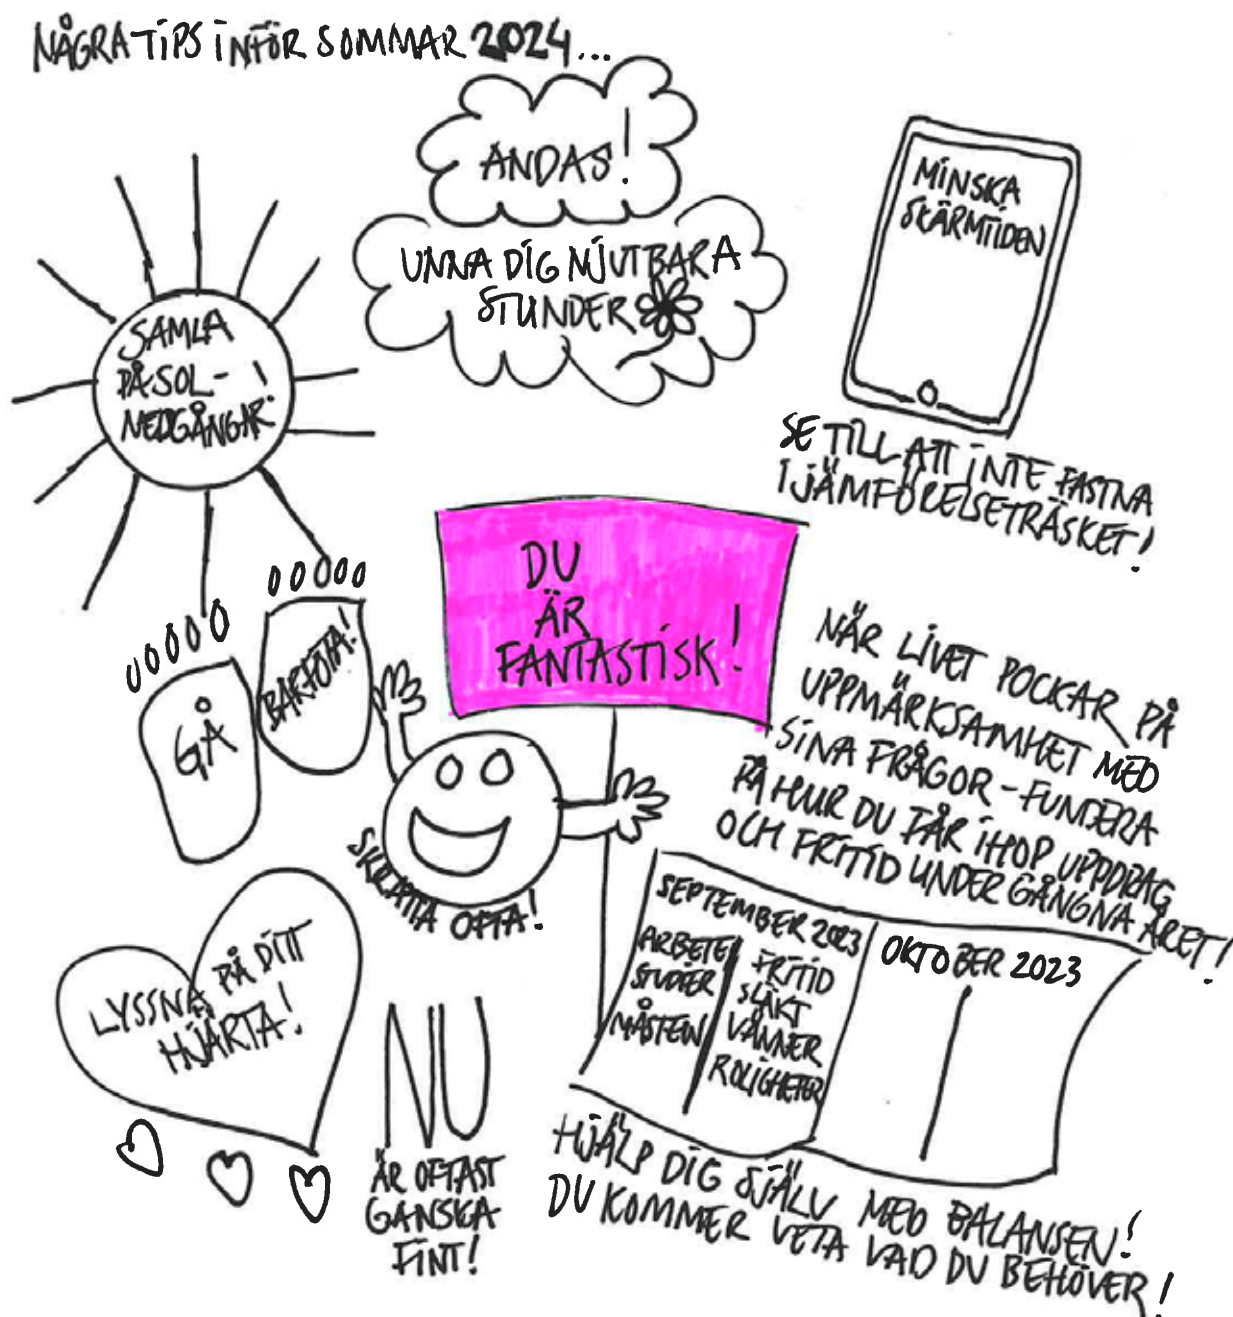 NÅGRA TIPS INFÖR SOMMAR 2024...
ANDAS!
UNNA DIG NJUTBARA
STUNDER
MINSKA
SKÄRMTIDEN
SE TILL ATT INTE FASTNA
I JÄMFÖRELSETRÄSKET!
SAMLA
PÅ SOL-
NEDGÅNGAR!
DU
ÄR
FANTASTISK!
GÅ
BARFOTA!
SKRATTA OFTA!
NÄR LIVET POCKAR PÅ
UPPMÄRKSAMHET MED
SINA FRÅGOR - FUNDERA
PÅ HUR DU FÅR IHOP UPPDRAG
OCH FRITID UNDER GÅNGNA ÅRET!
SEPTEMBER 2023
ARBETE
STUDIER
MÅSTEN
FRITID
SLÄKT
VÄNNER
ROLIGHETER
OKTOBER 2023
LYSSNA PÅ DITT
HJÄRTA!
NU
ÄR OFTAST
GANSKA
FINT!
HJÄLP DIG SJÄLV MED BALANSEN!
DU KOMMER VETA VAD DU BEHÖVER!